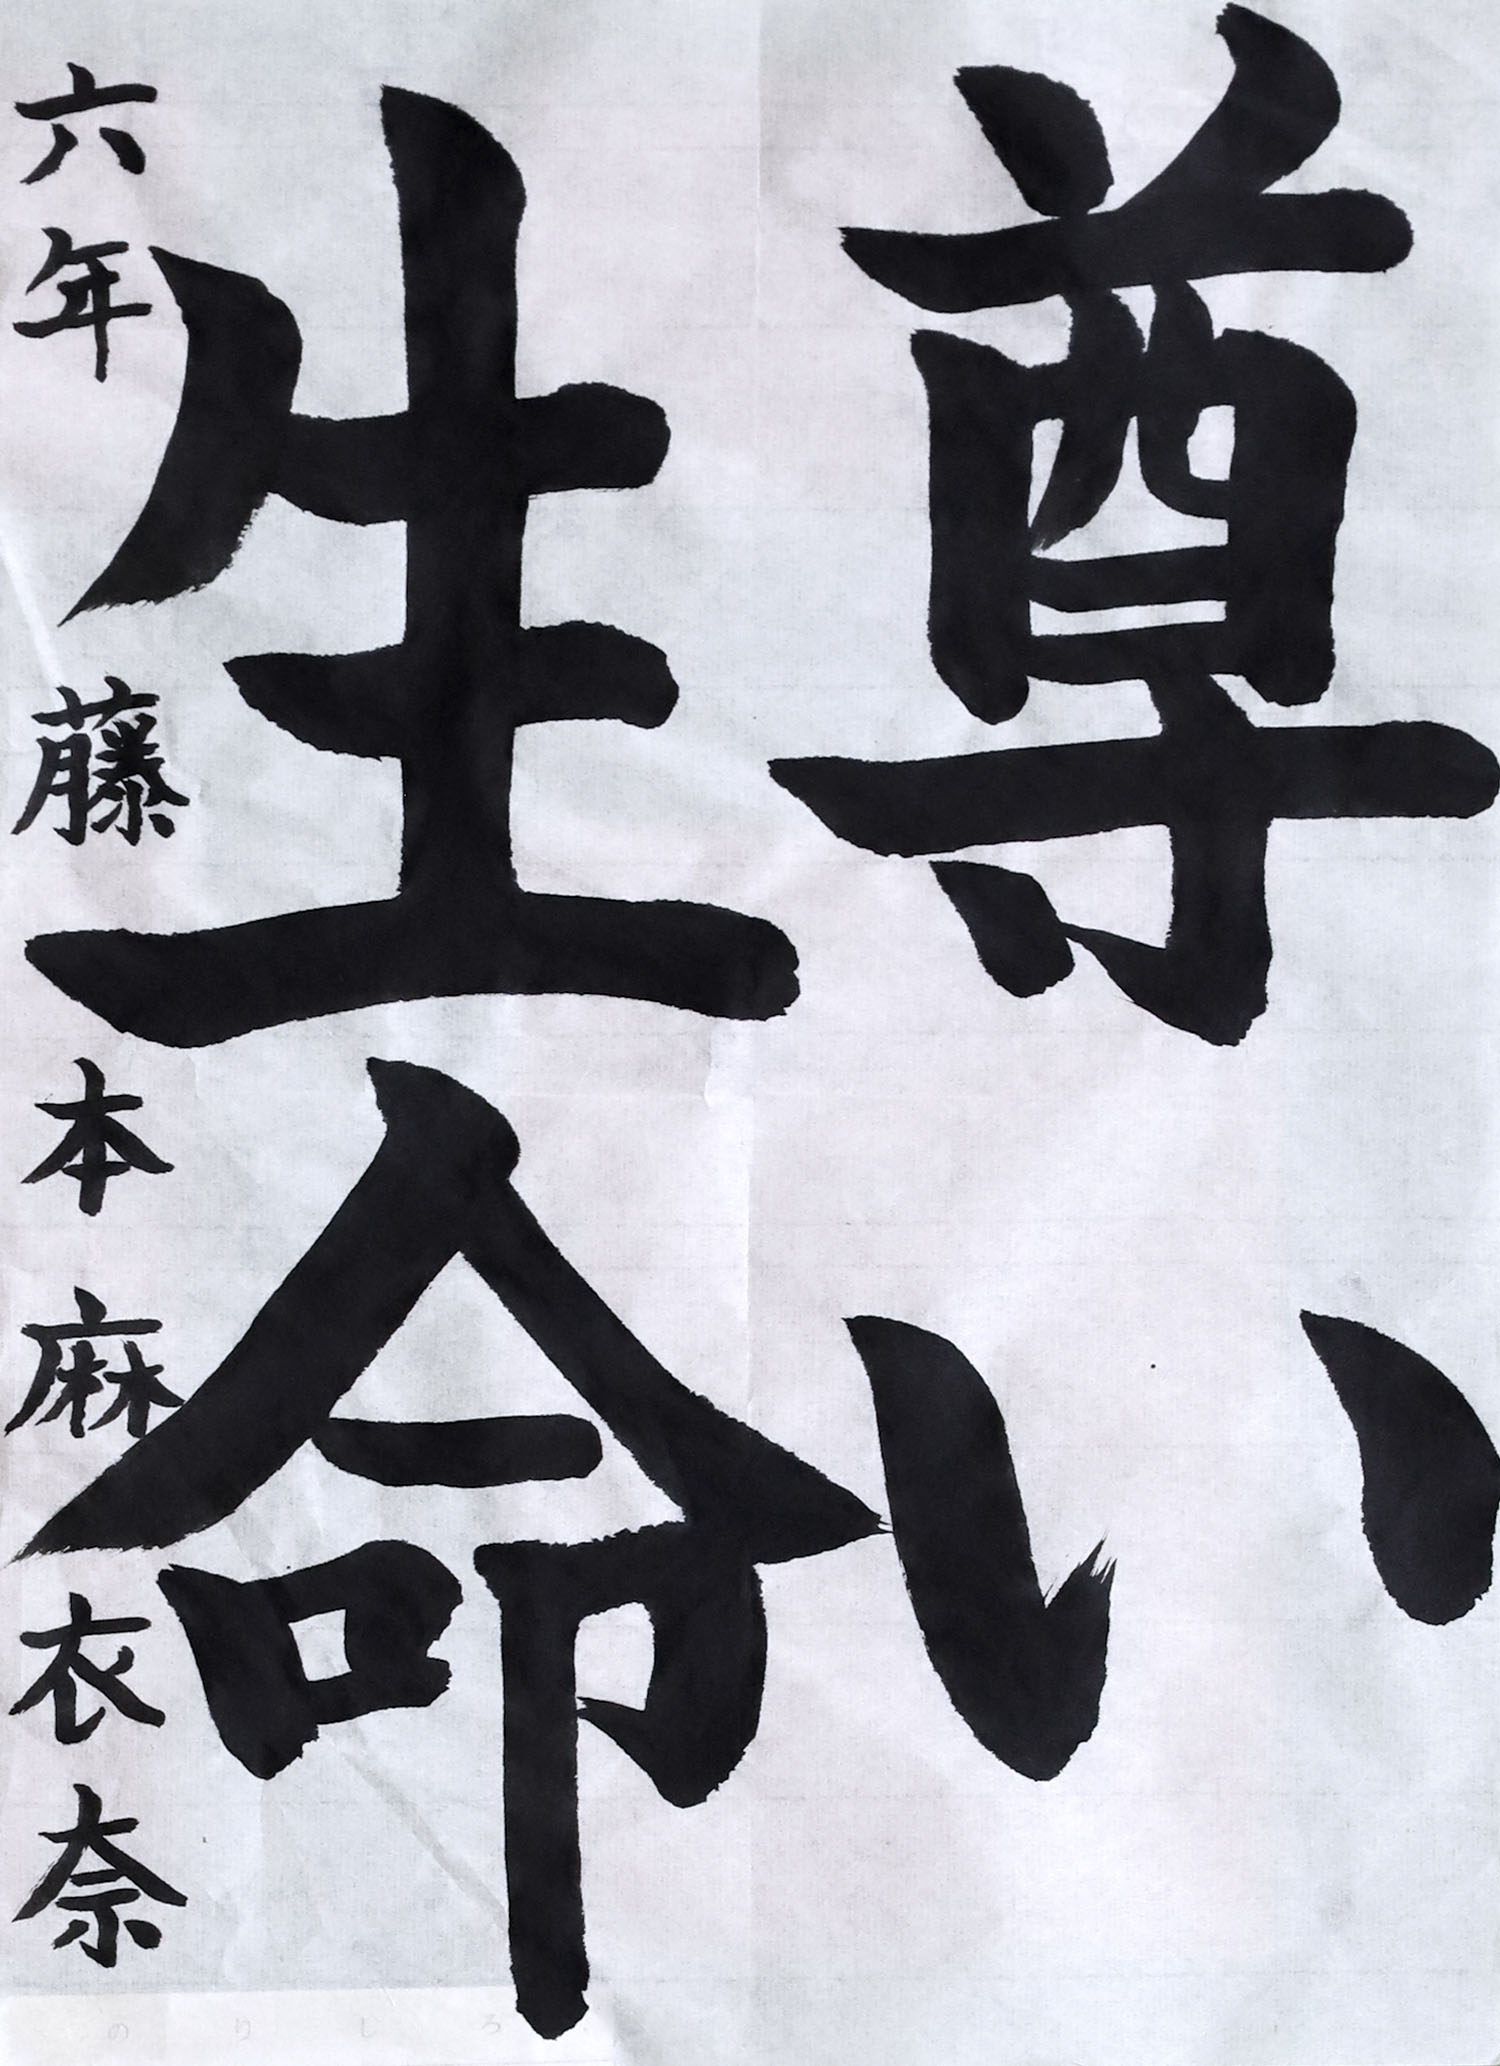 尊い
生命
六年 藤本麻衣奈
のりしろ